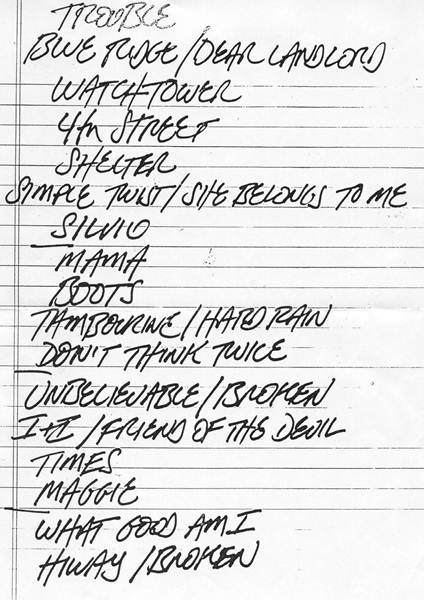 TROUBLE
BLUE RIDGE / DEAR LANDLORD
WATCHTOWER
4th STREET
SHELTER
SIMPLE TWIST / SHE BELONGS TO ME
SILVIO
MAMA
BOOTS
TAMBOURINE / HARD RAIN
DON'T THINK TWICE
UNBELIEVABLE / BROKEN
I + II / FRIEND OF THE DEVIL
TIMES
MAGGIE
WHAT GOOD AM I
HIWAY / BROKEN